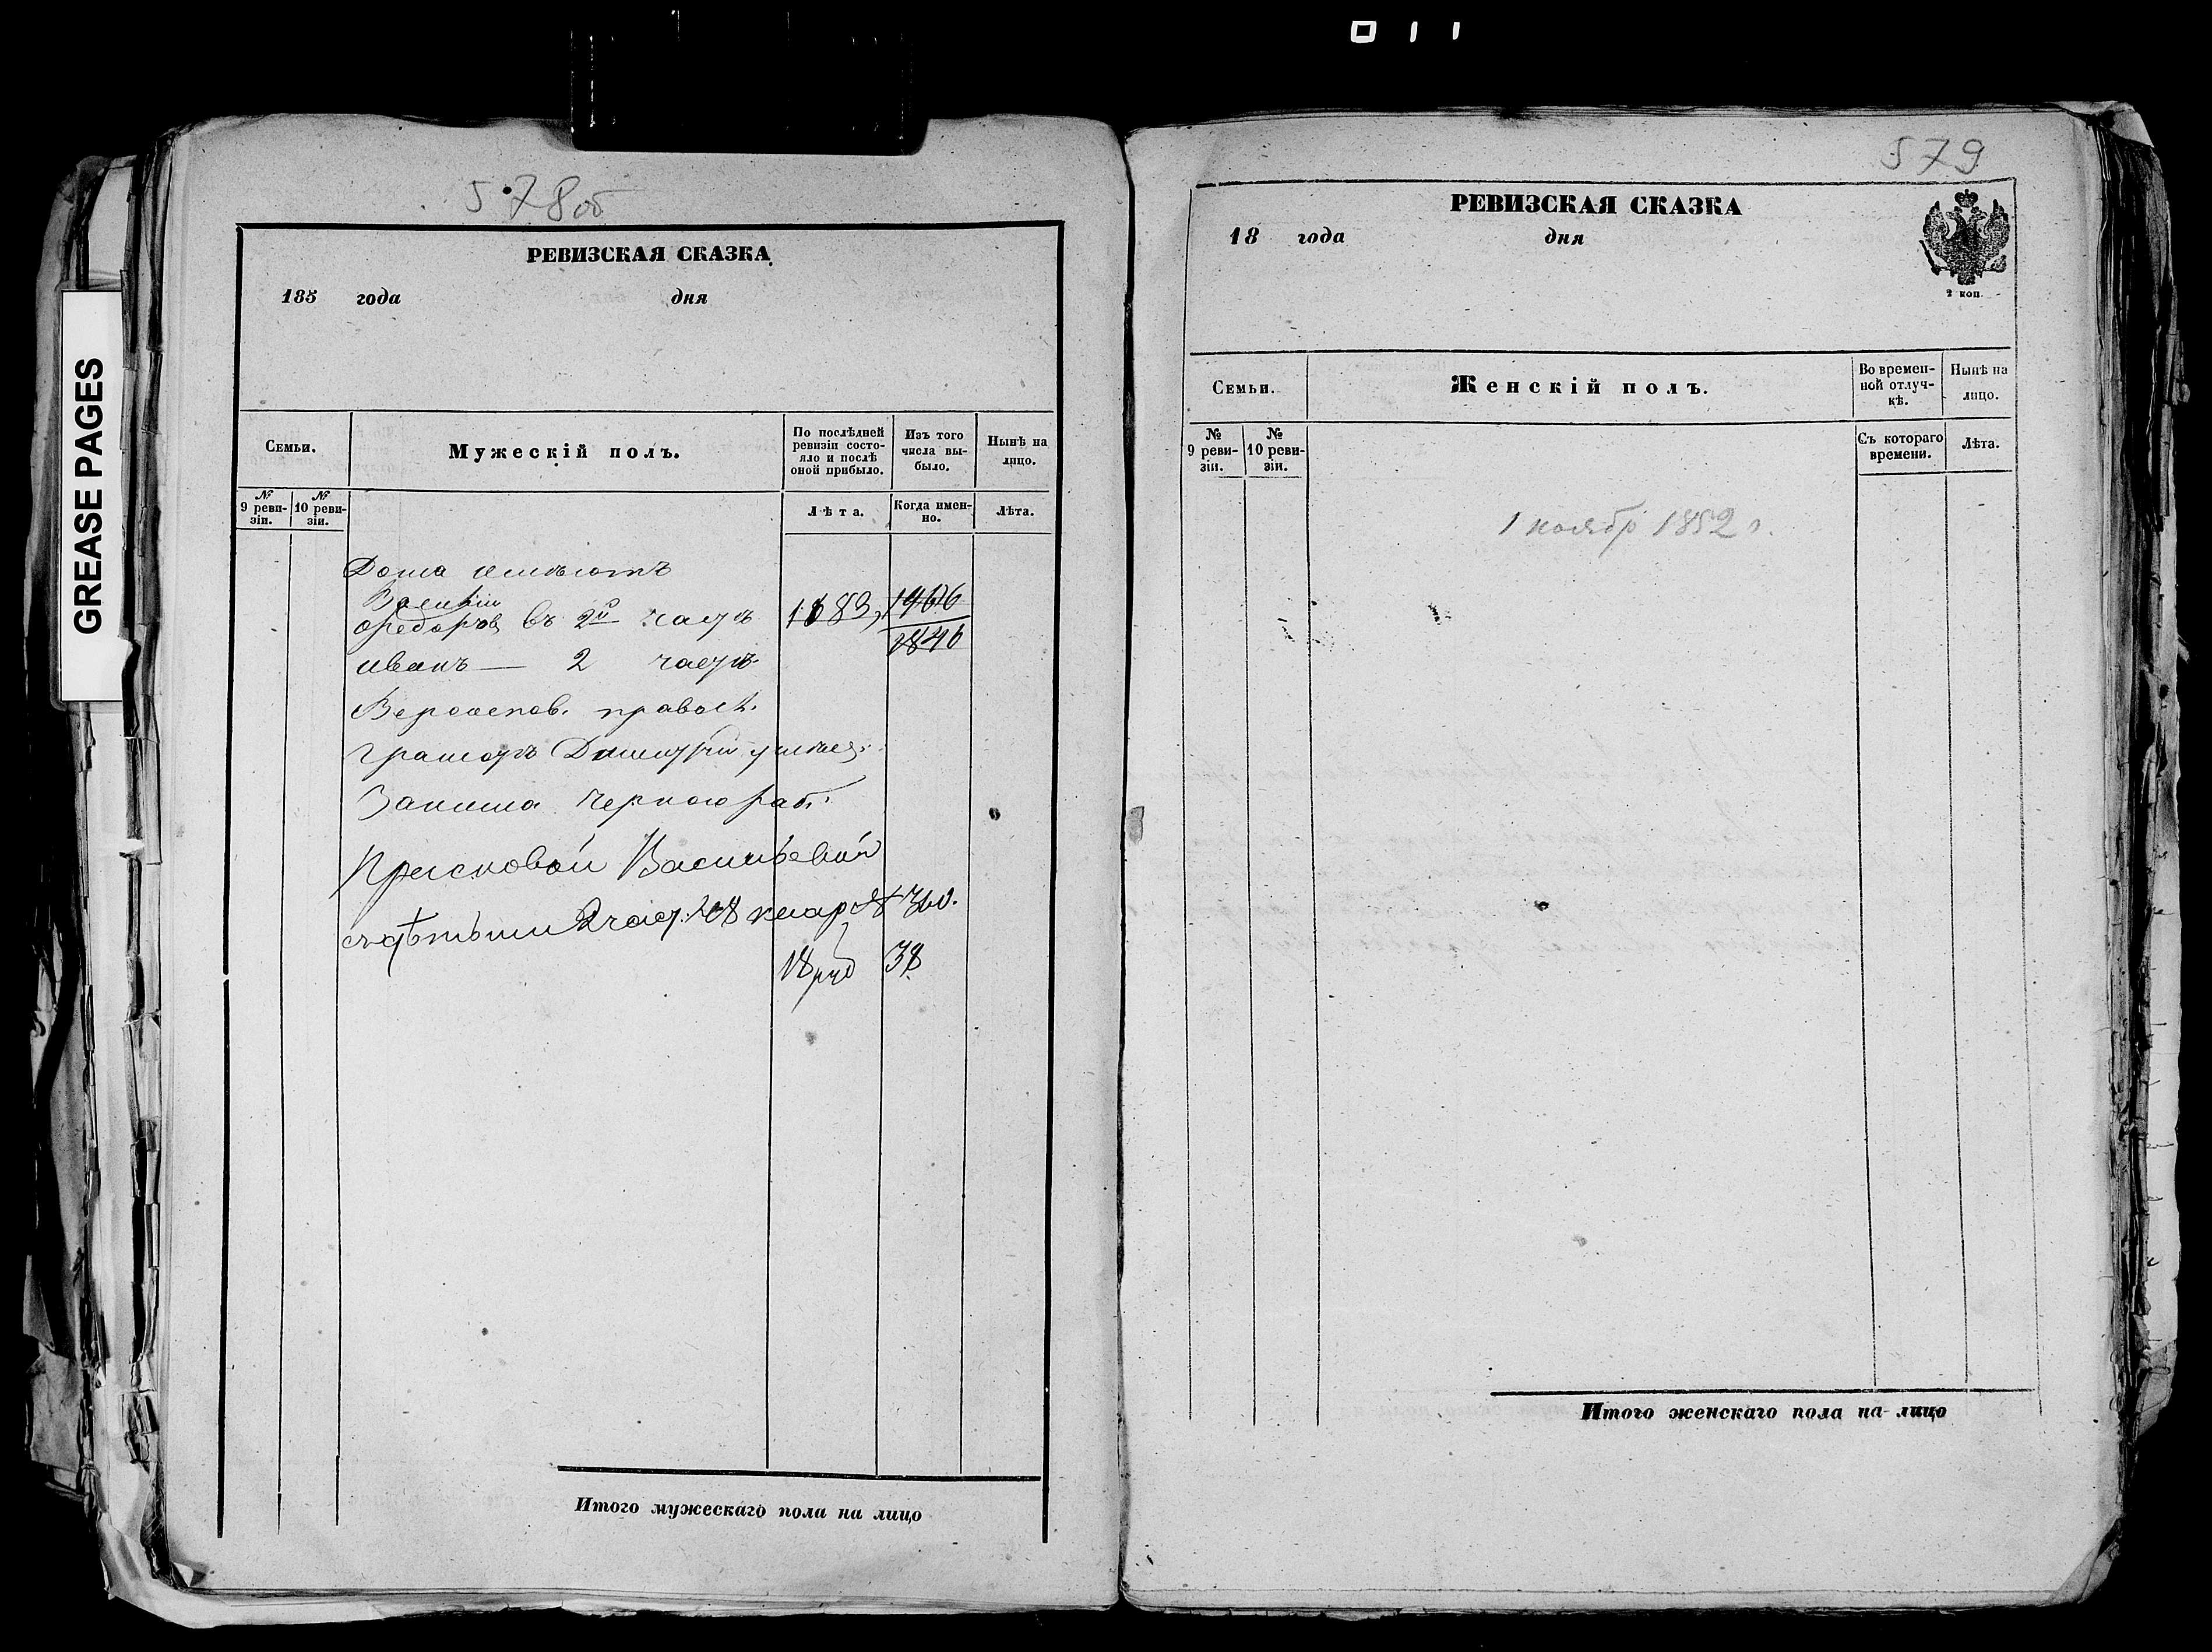 011
GREASE PAGES
578об
РЕВИЗСКАЯ СКАЗКА
185 года дня
Семьи.
Мужескій полъ.
По послѣдней ревизіи состояло и послѣ оной прибыло.
Изъ того числа выбыло.
Нынѣ на лицо.
№ 9 ревизіи.
№ 10 ревизіи.
Лѣта.
Когда именно.
Лѣта.
Дома имѣютъ
Василій
Федоровъ въ 2й части 1683, 1906
1846
Иванъ — 2 части
Вероиспов. правосл.
грамотѣ Дмитрій умѣе
Заним черною раб.
Прасковьи Васильевой
съ дѣтьми 2 част. кварт 360.
18 руб 38
Итого мужескаго пола на лицо
579
РЕВИЗСКАЯ СКАЗКА
18 года дня
2 коп.
Семьи.
Женскій полъ.
Во временной отлучкѣ.
Нынѣ на лицо.
№ 9 ревизіи.
№ 10 ревизіи.
Съ котораго времени.
Лѣта.
1 ноябр 1852 г.
Итого женскаго пола на лицо